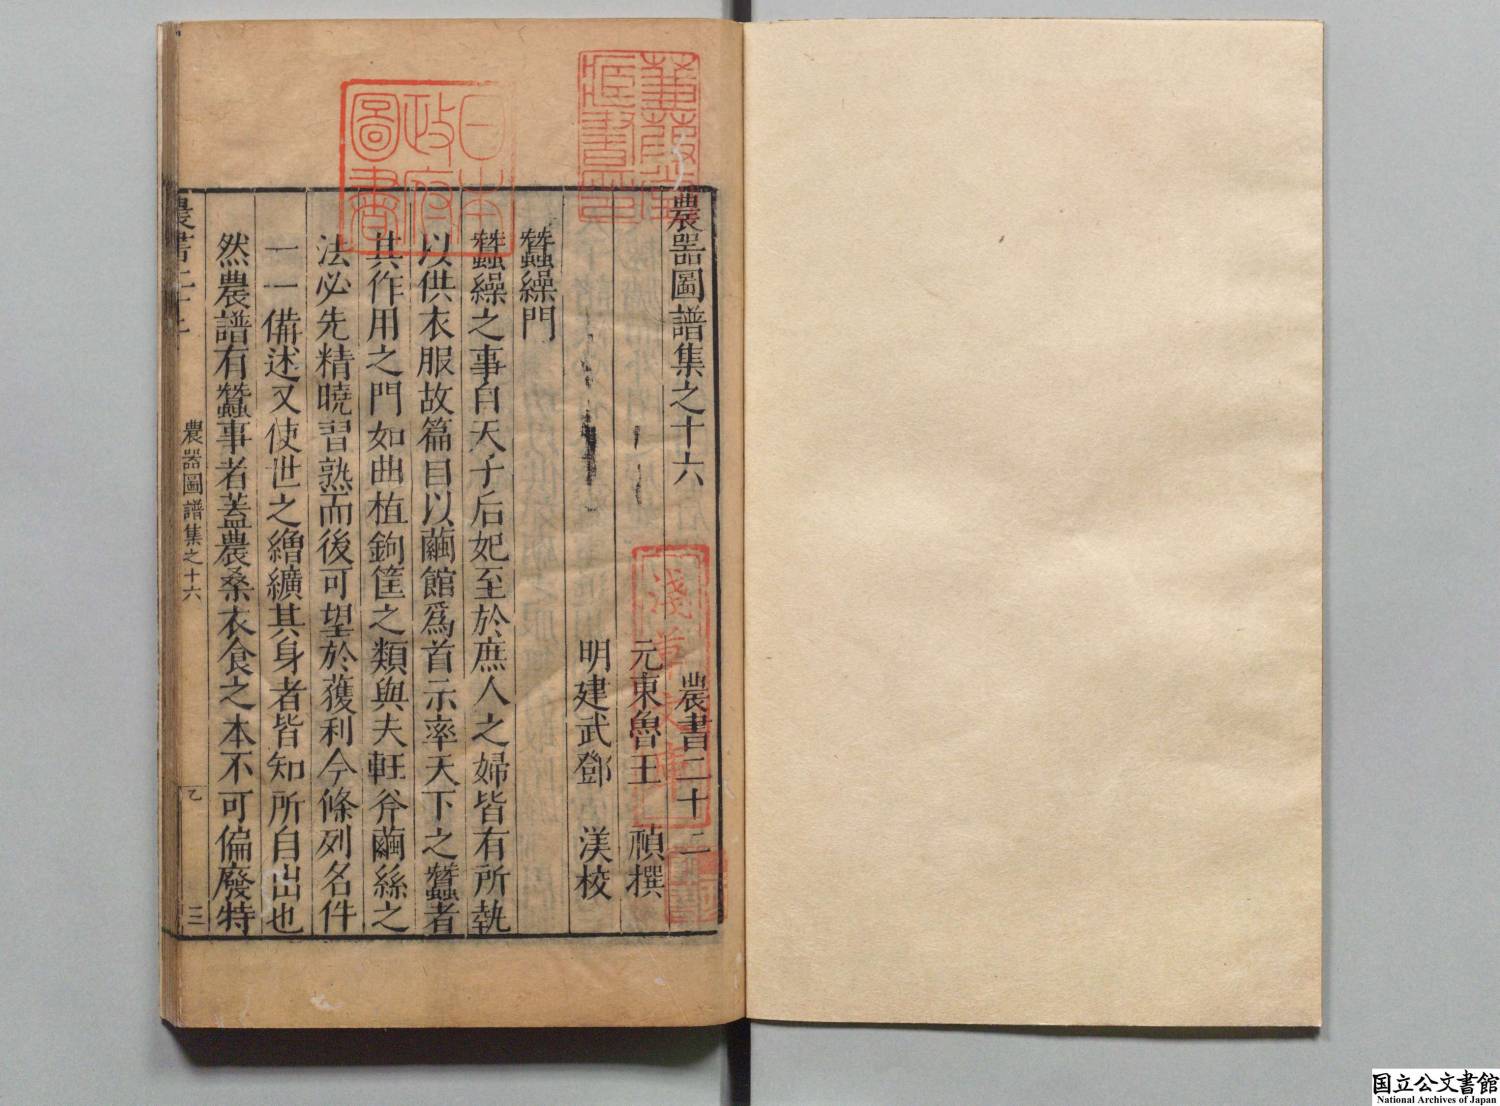 農器圖譜集之十六 農書二十二
元東魯王 禎撰
明建武鄧 渼校
蠶繰門
蠶繰之事自天子后妃至於庶人之婦皆有所執
以供衣服故篇目以繭館爲首示率天下之蠶者
其作用之門如曲植鉤筐之類與夫軖斧繭絲之
法必先精曉習熟而後可望於獲利今條列名件
一一備述又使世之繒纊其身者皆知所自出也
然農譜有蠶事者蓋農桑衣食之本不可偏廢特
農器圖譜集之十六
日本政府圖書
蒹葭堂藏書印
淺草文庫
国立公文書館
National Archives of Japan